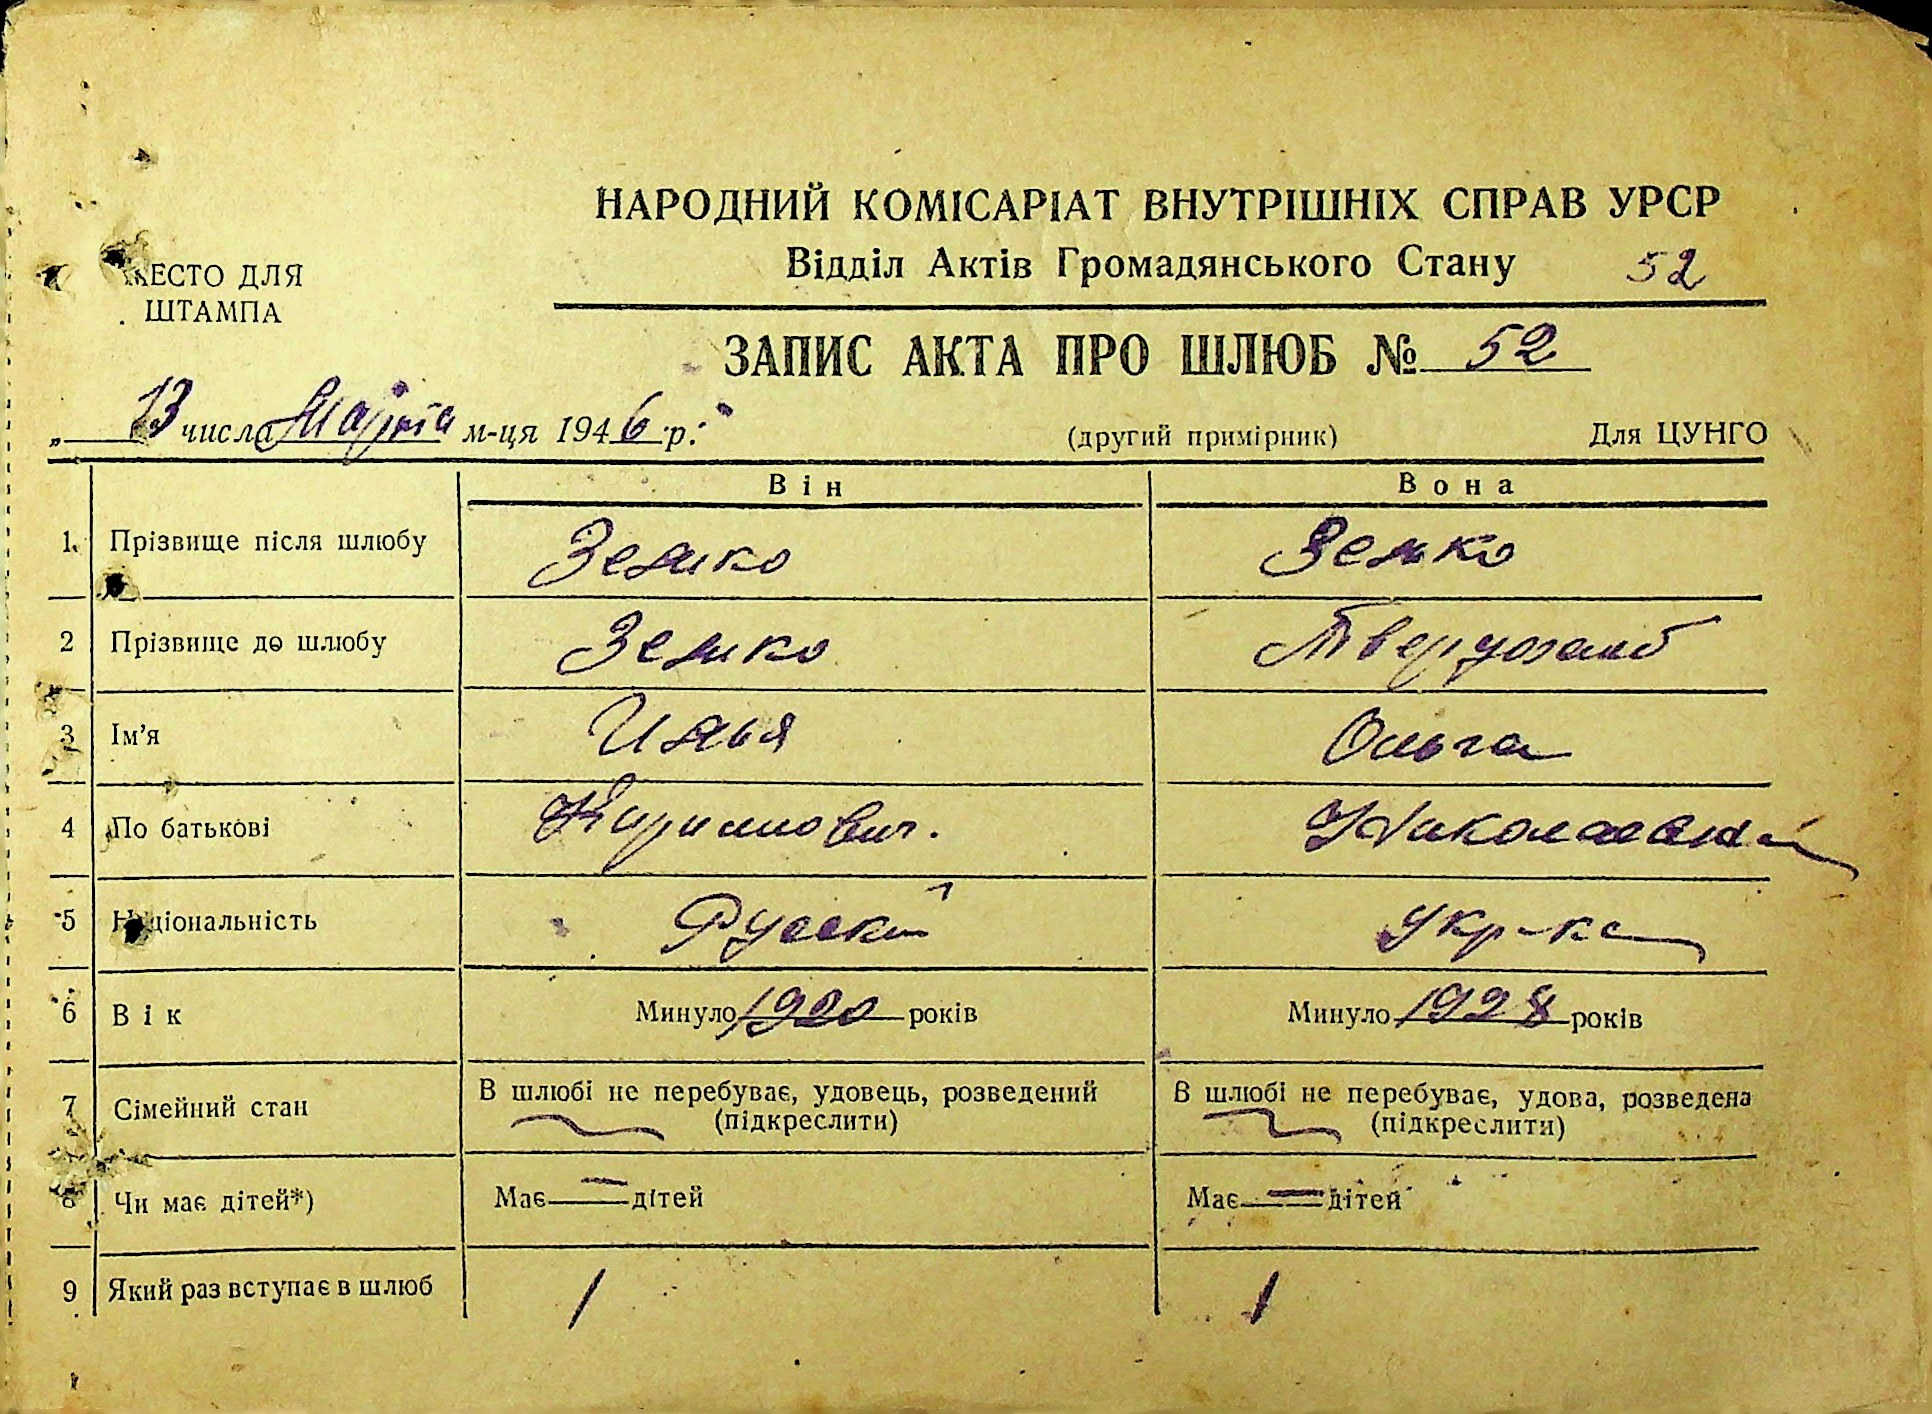 НАРОДНИЙ КОМІСАРІАТ ВНУТРІШНІХ СПРАВ УРСР
Відділ Актів Громадянського Стану 52
МЕСТО ДЛЯ
ШТАМПА
ЗАПИС АКТА ПРО ШЛЮБ № 52
„ 13 числа Марта м-ця 1946 р.
(другий примірник) Для ЦУНГО
Він Вона
1. Прізвище після шлюбу Земко Земко
2 Прізвище до шлюбу Земко
3 Ім'я Илья Ольга
4 По батькові Кириллович. Николаевна
5 Національність Русский Укр-ка
6 Вік Минуло 1920 років Минуло 1928 років
7 Сімейний стан В шлюбі не перебуває, удовець, розведений (підкреслити) В шлюбі не перебуває, удова, розведена (підкреслити)
8 Чи має дітей*) Має — дітей Має — дітей
9 Який раз вступає в шлюб 1 1